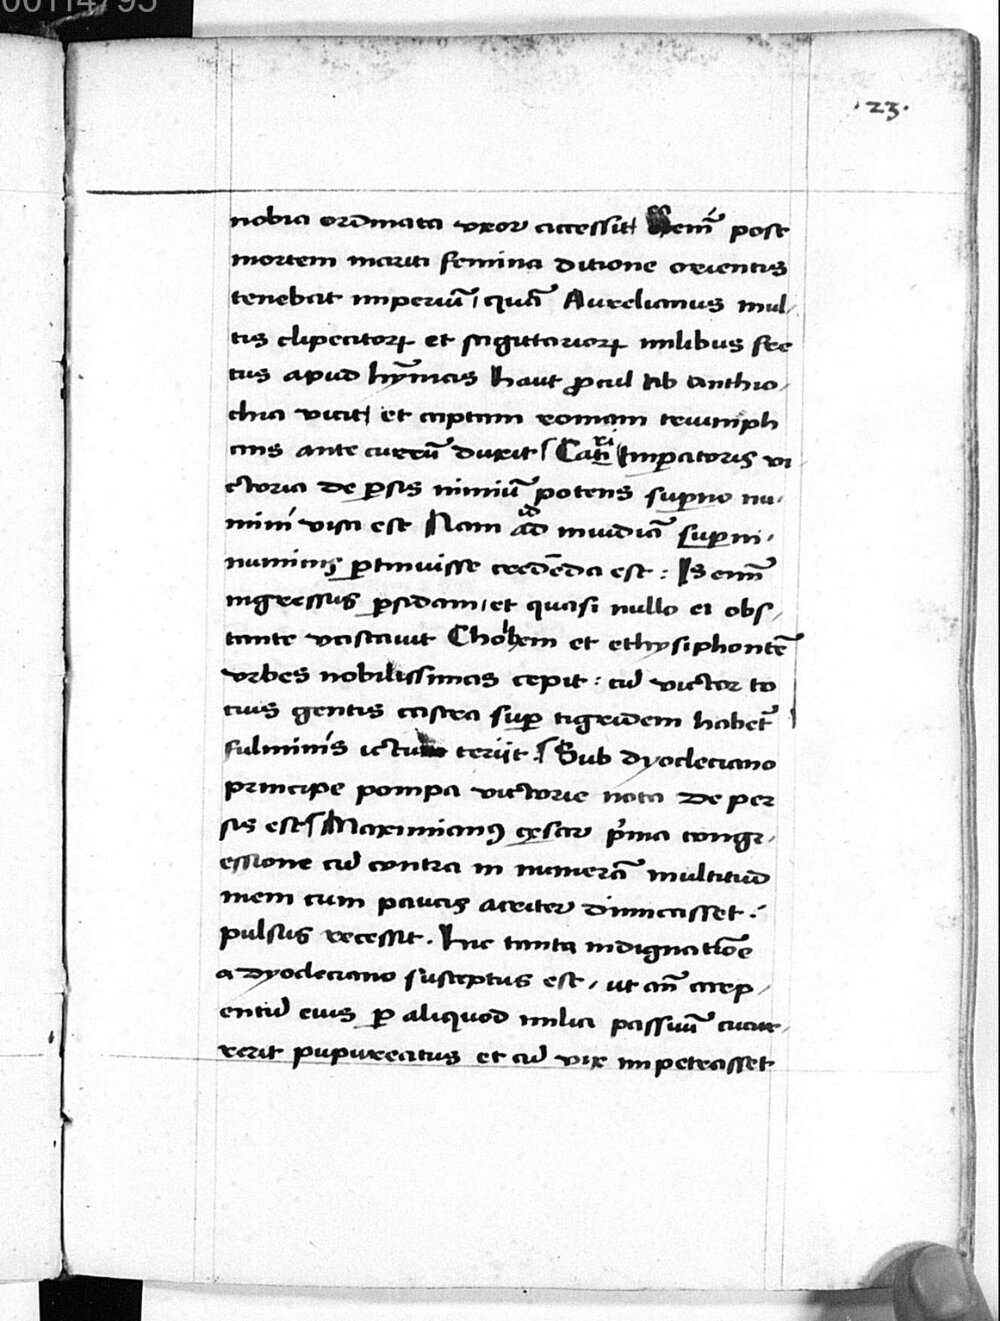 00114795
·23·
nobia ordinata uxor accessit eni᷑ post
mortem mariti femina ditione orientis
tenebat imperiū quā Aurelianus mul-
tis clipeatoꝝ et sagittarioꝝ milibus fre
tus apud hȳmas haut ꝓcul ab anthio-
chia vicit et captam romam triumph
ans ante currū duxit Cari Imꝑatoris vi
ctoria de ꝑsis nimiū potens suꝑno nu-
mini visa est Nam ad inuidiā suꝑni-
numinis ꝑtinuisse credēda est : Is enī
ingressus ꝑsidam et quasi nullo ei obs-
tante vastauit Chochem et ethysiphontē
vrbes nobilissimas cepit : cū victor to
tius gentis castra suꝑ tigridem habet᷑
fulminis ictu teriit : Sub dyocleciano
principe pompa victorie nota de per
sis est Maximianꝰ cesar p̄ma congr-
essione cū contra in numerā multitud
inem cum paucis acriter dimicasset :
pulsus recessit . hic tanta indignatiōe
a dyocleciano susceptus est , ut añ carp-
entū eius ꝑ aliquod milia passuū cucur-
rerit pupureatus et cū vix impetrasset